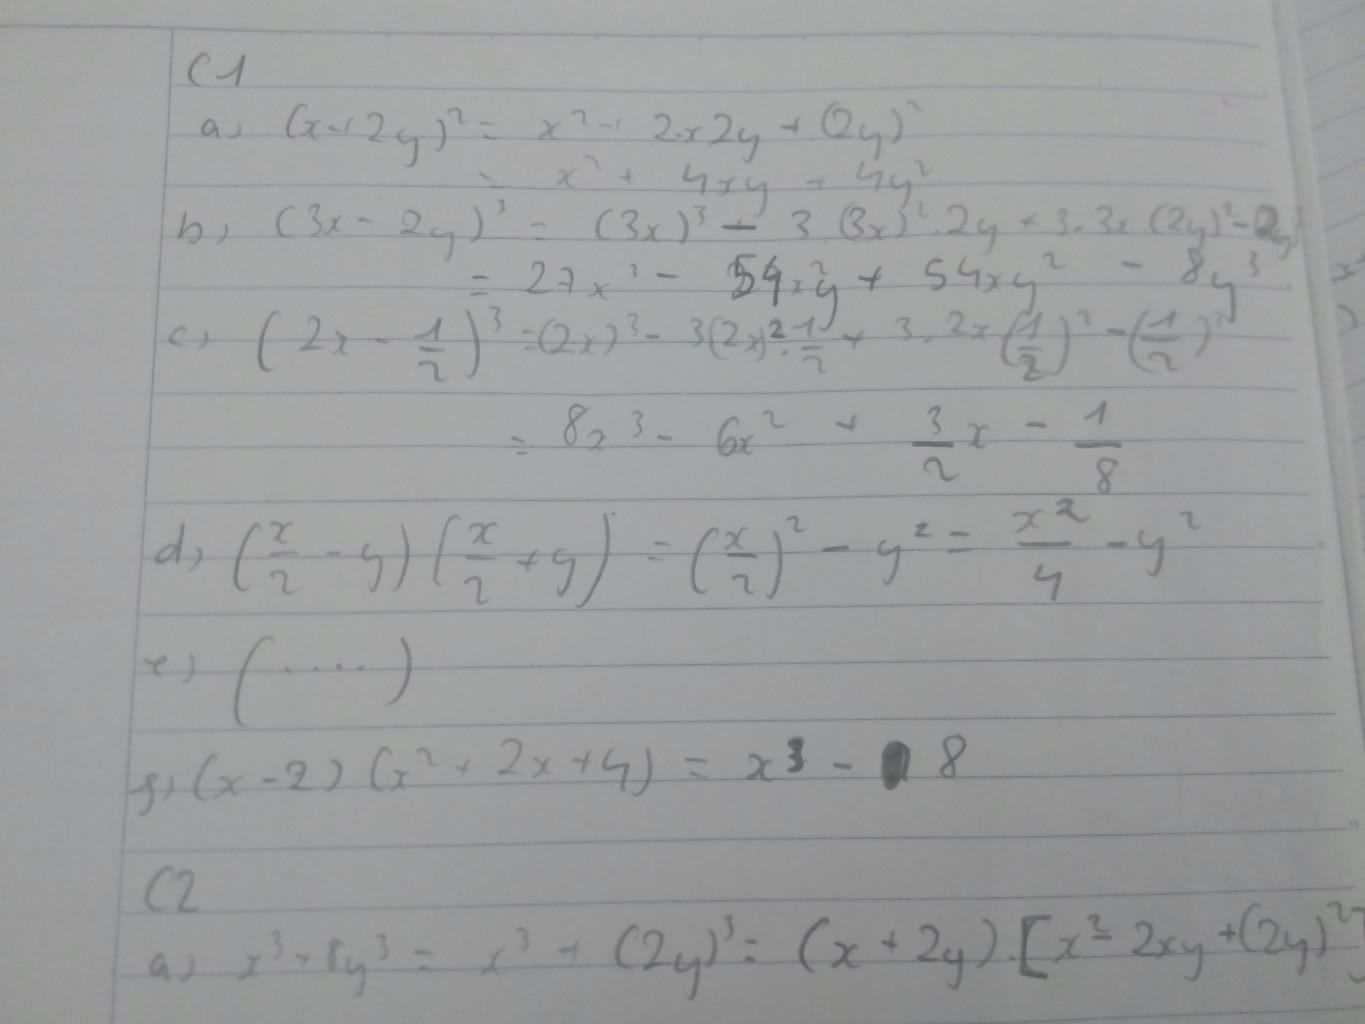 C1
a) (x+2y)² = x² + 2.x2y + (2y)²
= x² + 4xy + 4y²
b) (3x - 2y)³ = (3x)³ - 3(3x)².2y + 3.3x(2y)² - (2y)
= 27x³ - 54x²y + 54xy² - 8y³
c) (2x - 1/2)³ = (2x)³ - 3(2x)².1/2 + 3.2x(1/2)² - (1/2)³
= 8x³ - 6x² + 3/2 x - 1/8
d) (x/2 - y)(x/2 + y) = (x/2)² - y² = x²/4 - y²
e) (.....)
g) (x-2)(x²+2x+4) = x³ - 8
C2
a) x³+8y³ = x³ + (2y)³ = (x+2y).[x² - 2xy + (2y)²]